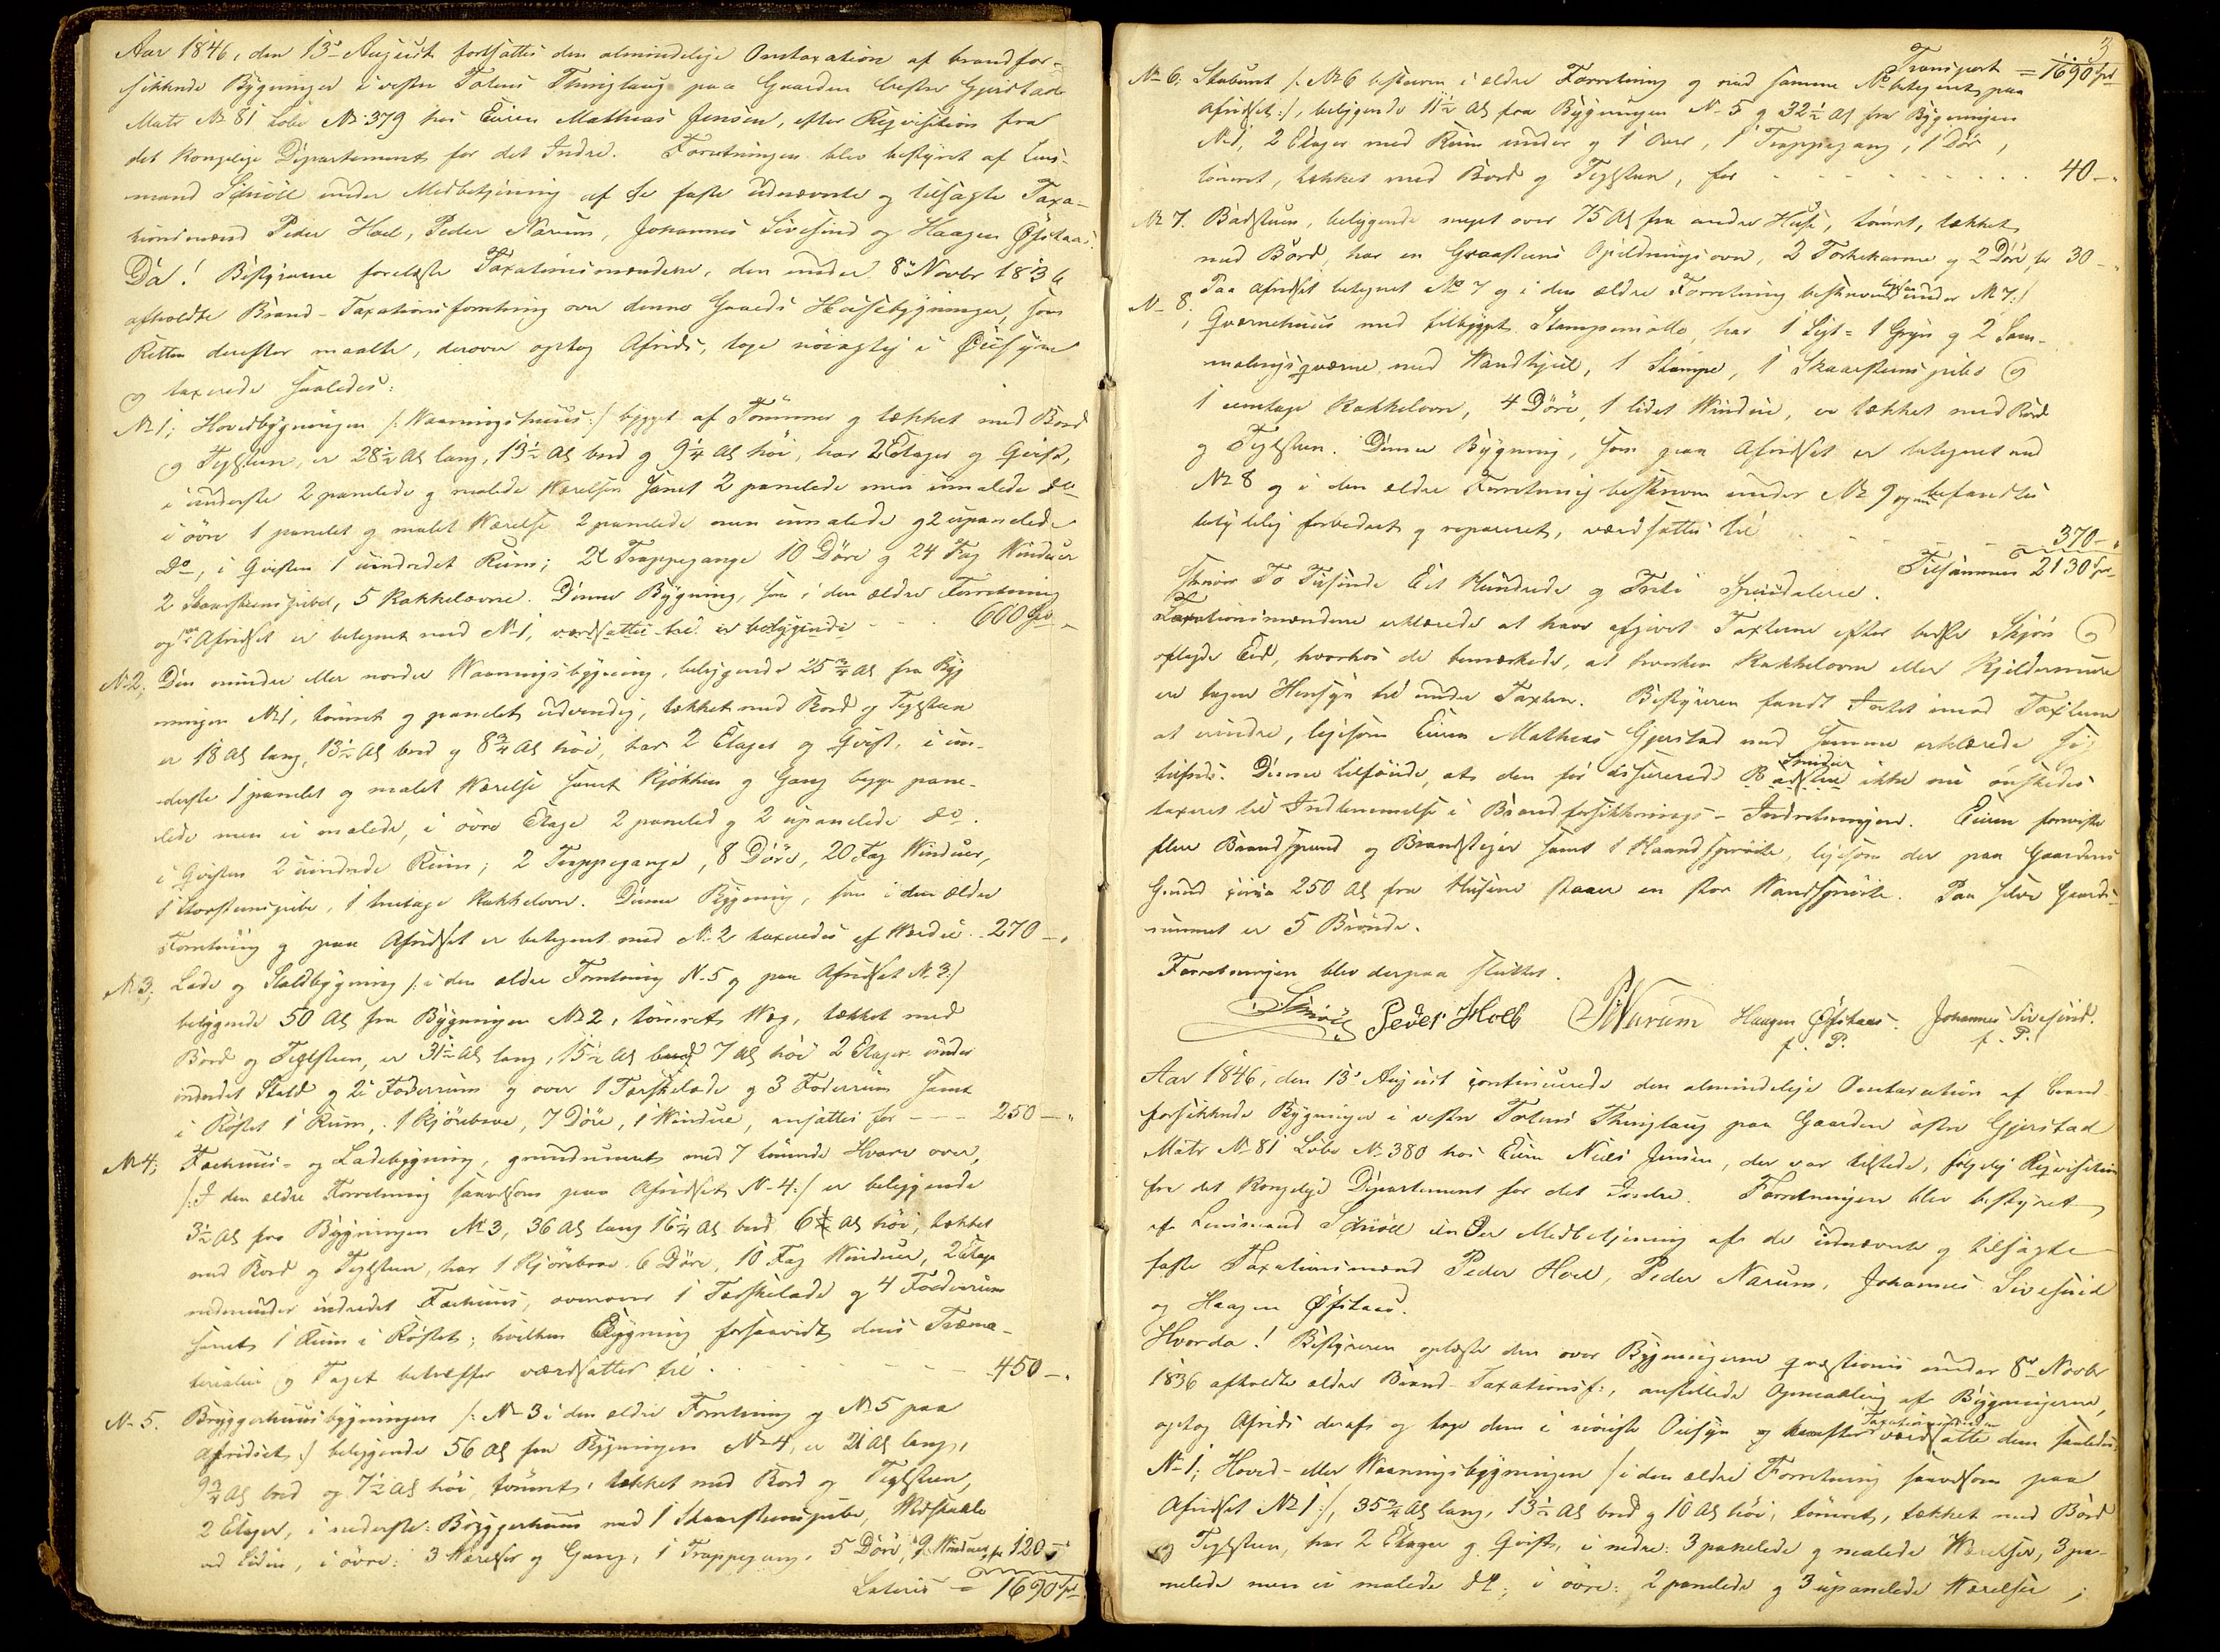 Aar 1846, den 13de August fortsattes den almindelige Omtaxation af brandfor-
sikkrede Bygninger i vestre Totens Thinglaug paa Gaarden vestre Gjerstad
Matr No 81 Löbe No 379 hos Eieren Mathias Jensen, efter Reqvisition fra
det kongelige Departement for det Indre. Forretningen blev bestyret af Lens-
mand Schiöll under Medbetjening af de faste udnævnte og tilsagte Taxa-
tionsmænd Peder Hoel, Peder Narum, Johannes Sivesind og Haagen Öfstaas.
Da! Bestyreren foreläste Taxationsmændene, den under 8de Novbr 1836
afholdte Brand-Taxationsforretning over denne Gaards Huusebygninger, som
Retten derefter maalte, derover optog Afrids, toge nöiagtig i Öiesyn
og taxerede saaledes:
No 1; Hovedbygningen /: Vaaningshuus :/ bygget af Tömmer og tækket med Bord
og Teglsteen, er 28½ Al lang, 13½ Al bred og 9¼ Al höi, har 2 Etager og Qvist,
i underste 2 panelede og malede Værelser samt 2 panelede men umalede do
i övre 1 panelet og malet Værelse 2 panelede men umalede og 2 upanelede
do, i Qvisten 1 uindredet Rum; 2 Trappegange 10 Döre og 24 Fag Vinduer
2 Skorsteenspiber, 5 Kakkelovne. Denne Bygning, som i den ældre Forretning
og paa Afridset er betegnet med No 1, værdsattes til er belyggende - - - 600 Spd -
No 2; Den mindre eller nordre Vaaningsbygning, belyggende 25¾ Al fra Byg
ningen No 1, tömret og panelet udvendig, tækket med Bord og Teglsteen
er 18 Al lang, 13½ Al bred og 8¾ Al höi, har 2 Etager og Qvist, i un-
derste 1 panelet og malet Værelse samt Kjökken og Gang begge pane-
lede men ei malede, i övre Etage 2 paneled og 2 upanelede do.
i Qvisten 2 uindrede Rum; 2 Trappegange, 8 Döre, 20 Fag Vinduer,
1 Skorsteenspibe, 1 treetage Kakkelovn. Denne Bygning, som i den ældre
Forretning og paa Afridset er betegnet med No 2 taxeredes af Værdie - 270 -
No 3; Lade og Staldbygning /: i den ældre Forretning No 5 og paa Afridset No 3 :/
belyggende 50 Al fra Bygningen No 2, tömret Væg, tækket med
Bord og Teglsteen, er 31½ Al lang, 15½ Al bred 7 Al höi 2 Etager under
indredet Stald og 2 Foderrum og over 1 Tærskelade og 3 Foderrum samt
i Röstet 1 Rum, 1 Kjörebroe, 7 Döre, 1 Vindue, ansattes for - - - 250 -
No 4; Faehuus- og Ladebygning, grundmuret med 7 tömrede Hvarv over,
/: I den ældre Forretning saavelsom paa Afridset No 4 :/ er belyggende
3½ Al fra Bygningen No 3, 36 Al lang 16¼ Al bred 6¼ Al höi, tækket
med Bord og Teglsteen, har 1 Kjörebroe 6 Döre, 10 Fag Vinduer, 2 Etage
nedenunder indredet Faehuus, ovenover 1 Tærskelade og 4 Foderrum
samt 1 Rum i Röstet; hvilken Bygning forsaavidt dens Træma-
terialier og Taget betræffer værdsattes til - - - 450 -
No 5. Bryggerhuusbygningen /: No 3 i den ældre Forretning og No 5 paa
Afridset :/ belyggende 56 Al fra Bygningen No 4, er 21 Al lang,
9¾ Al bred og 7½ Al höi, tömret, tækket med Bord og Teglsteen,
2 Etager, i nederste: Bryggerhuus med 1 Skaarsteenspibe, Vedskaale
ved Siden, i övre: 3 Værelser og Gang, 1 Trappegang, 5 Döre, 9 Vinduer, for 120 -
Lateris = 1690 Spd
3
Transport = 1690 Spd
No 6; Staburet /: No 6 beskreven i ældre Forretning og med samme No betegnet paa
Afridset :/, belyggende 11½ Al fra Bygningen No 5 og 32½ Al fra Bygningen
No 1, 2 Etager med Rum under og 1 Over, 1 Trappegang, 1 Dör,
tömret, tækket med Bord og Teglsteen, for - - - 40 -
No 7. Badstuen, belyggende meget over 75 Al fra andre Huse, tömret, tækket
med Bord, har en Graasteens Opildningsovn, 2 Törkekamre og 2 Döre, for 30 -
Paa Afridset betegnet No 7 og i den ældre Forretning beskreven ligesaa under No 7 :/
No 8; Qværnehuus med tilbygget Stampemölle, har 1 Sigt- 1 Gryn og 2 Sam-
malingsqværne med Vandhjul, 1 Stampe, 1 Skaarsteenspibe og
1 eenetage Kakkelovn, 4 Döre, 1 lidet Vindue, er tækket med Bord
og Teglsteen. Denne Bygning, som paa Afridset er betegnet med
No 8 og i den ældre Forretning beskreven under No 9 og nu befandtes
betydelig forbedret og repareret, værdsattes til - - - 370 -
Tilsammen 2130 Spd
skriver To Tusinde Eet Hundrede og Tredi Speciedaler.
Taxationsmændene erklærede at have afgivet Taxterne efter bedste Skjön og
aflagde Eed, hvorhos de bemærkede, at hverken Kakkelovne eller Kjeldermure
ere tagne Hensyn til under Taxten. Bestyreren fandt Intet imod Taxterne
at erindre, ligesom Eieren Mathias Gjerstad med samme erklærede sig
tilfreds. Denne tilföiede, at den för assurerede Smidie ikke nu önskedes
taxeret til Indlemmelse i Brandforsikkrings-Indretningen. Eieren foreviste
flere Brandspand og Brandstiger samt 1 Haandspröite, ligesom der paa Gaardens
Grund circa 250 Al fra Husene staaer en stor Vandspröite. Paa selve Gaards-
rummet er 5 Brönde.
Forretningen blev derpaa sluttet.
Schiöll Peder Hoel PNarum Haagen Öfstaas. Johannes Sivesind.
f. P. f. P.
Aar 1846, den 13de August continuerede den almindelige Omtaxation af brand-
forsikkrede Bygninger i vestre Totens Thinglaug paa Gaarden östre Gjerstad
Matr No 81 Löbe No 380 hos Eieren Niels Jensen, der var tilstede, fölgelig Reqvisition
fra det kongelige Departement for det Indre. Forretningen blev bestyret
af Lensmand Schiöll under Medbetjening af de udnævnte og tilsagte
faste Taxationsmænd Peder Hoel, Peder Narum, Johannes Sivesind
og Haagen Öfstaas.
Hvorda! Bestyreren oplæste den over Bygningerne qvæstionis under 8de Novbr
1836 afholdte ældre Brand-Taxationsf:, anstillede Opmaaling af Bygningerne,
optog Afrids deraf og toge dem i nöieste Öiesyn og hvorefter Taxationsmændene værdsatte dem saaledes:
No 1; Hoved- eller Vaaningsbygningen /: i den ældre Forretning saavelsom paa
Afridset No 1 :/, 35¾ Al lang, 13½ Al bred og 10 Al höi, tömret, tækket med Bord
og Teglsteen, har 2 Etager og Qvist, i nedre: 3 panelede og malede Værelser, 3 pa-
nelede men ei malede do; i övre: 2 panelede og 3 upanelede Værelser;